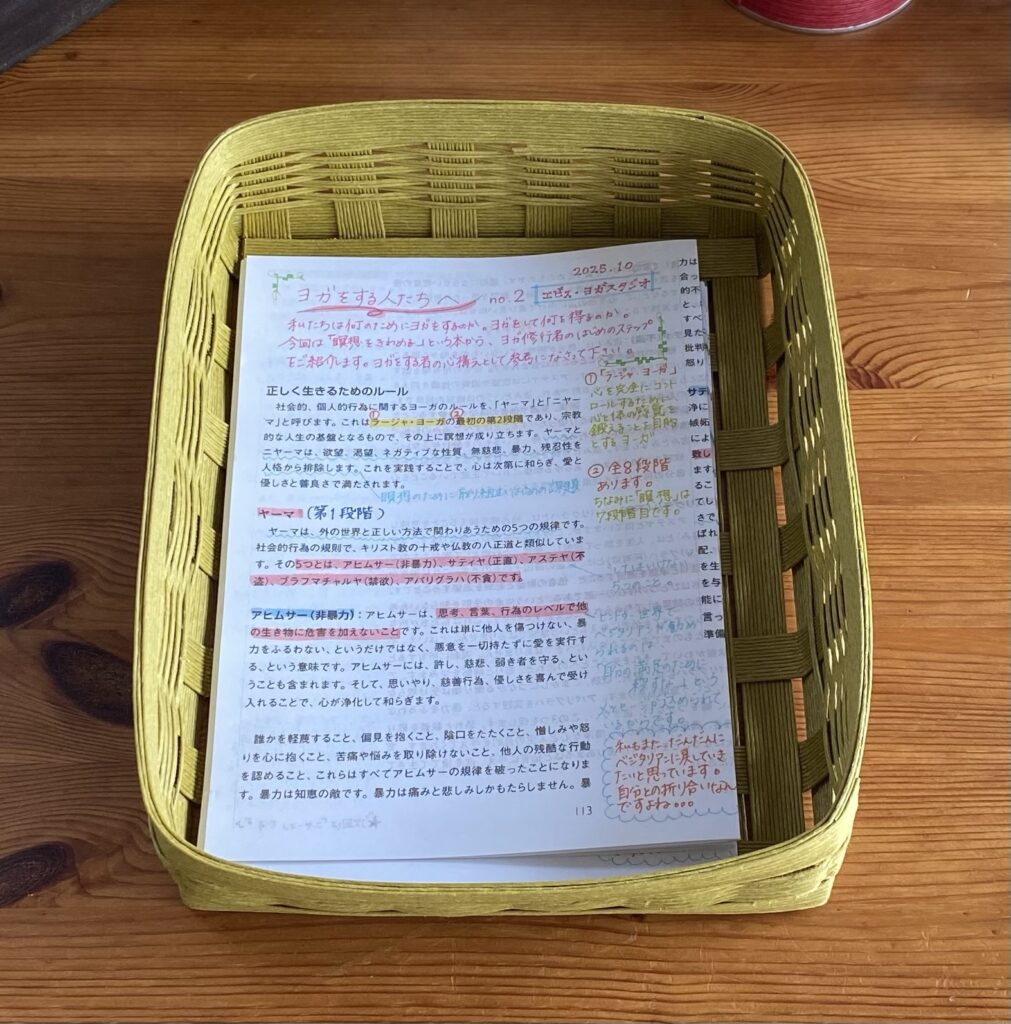 2025.10
ヨガをする人たちへ no.2 エビス・ヨガスタジオ
私たちは何のためにヨガをするのか。ヨガをして何を得るのか。
今回は「瞑想をきわめる」という本から、ヨガ修行者のはじめのステップ
をご紹介します。ヨガをする者の心構えとして参考になさって下さい。
正しく生きるためのルール
社会的、個人的行為に関するヨーガのルールを、「ヤーマ」と「ニヤー
マ」と呼びます。これはラージャ・ヨーガの最初の第2段階であり、宗教
的な人生の基盤となるもので、その上に瞑想が成り立ちます。ヤーマと
ニヤーマは、欲望、渇望、ネガティブな性質、無慈悲、暴力、残忍性を
人格から排除します。これを実践することで、心は次第に和らぎ、愛と
優しさと善良さで満たされます。
瞑想のために取り組むはじめの課題
ヤーマ (第1段階)
ヤーマは、外の世界と正しい方法で関わりあうための5つの規律です。
社会的行為の規則で、キリスト教の十戒や仏教の八正道と類似していま
す。その5つとは、アヒムサー(非暴力)、サティヤ(正直)、アステヤ(不
盗)、ブラフマチャルヤ(禁欲)、アパリグラハ(不貪)です。
アヒムサー(非暴力):アヒムサーは、思考、言葉、行為のレベルで他
の生き物に危害を加えないことです。これは単に他人を傷つけない、暴
力をふるわない、というだけではなく、悪意を一切持たずに愛を実行す
る、という意味です。アヒムサーには、許し、慈悲、弱き者を守る、とい
うことも含まれます。そして、思いやり、慈善行為、優しさを喜んで受け
入れることで、心が浄化して和らぎます。
誰かを軽蔑すること、偏見を抱くこと、陰口をたたくこと、憎しみや怒
りを心に抱くこと、苦痛や悩みを取り除けないこと、他人の残酷な行動
を認めること、これらはすべてアヒムサーの規律を破ったことになりま
す。暴力は知恵の敵です。暴力は痛みと悲しみしかもたらしません。暴
113
①「ラージャ ヨーガ」
心を完全にコント
ロールするために
心と体の感覚を
鍛えることを目的
とするヨーガ
② 全8段階
あります。
ちなみに「瞑想」は
7段階目です。
5つのこと。
ヒンドゥー世界で
ベジタリアンが勧め
られるのは
「自分の満足のために
殺すな」という
メッセージがこめられて
いるからです。
私もまただんだんに
ベジタリアンに戻していき
たいと思っています。
自分との折り合いなん
ですよね。。。
力は
会っ
的不
と、
すべ
見た
批判
怒り
サテ
浄に
嫉妬
によ
致し
ます
るこ
てし
さで
ばれ
配、
を生
を与
能に
言っ
準備